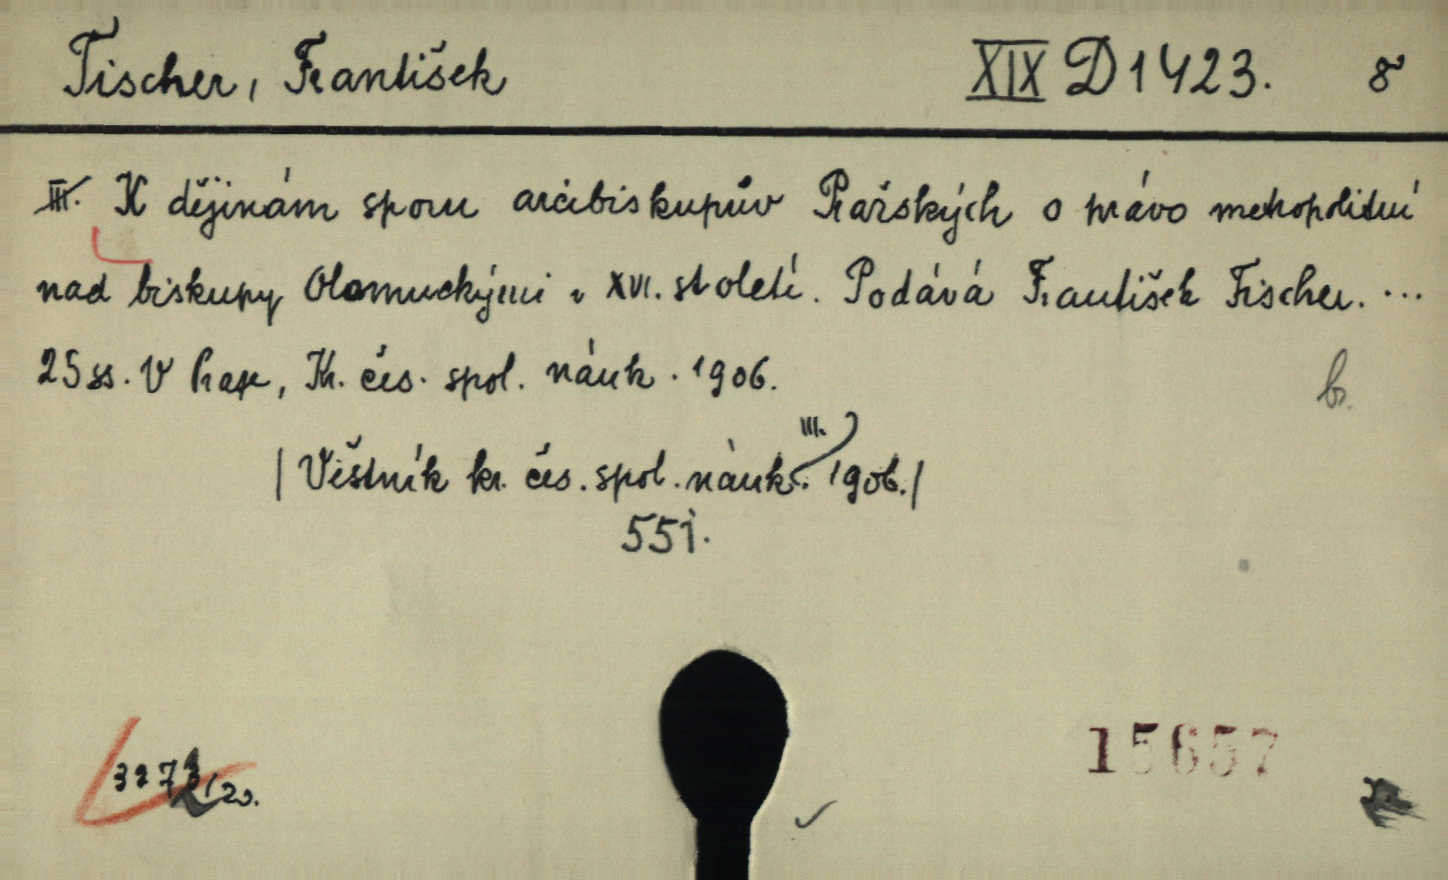 Fischer, František XIX D 1423. 8°
III. K dějinám sporu arcibiskupův Pražských o právo metropolitní
nad biskupy Olomuckými v XVI. století. Podává František Fischer. ...
25 ss. V Praze, Kr. čes. spol. náuk. 1906.
br.
III.
/Věstník kr. čes. spol. náuk. 1906./
551.
15657
/20.